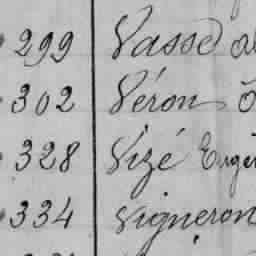 299 Vasse
302 Véron
328 Vizé Eugè
334 Vigneron